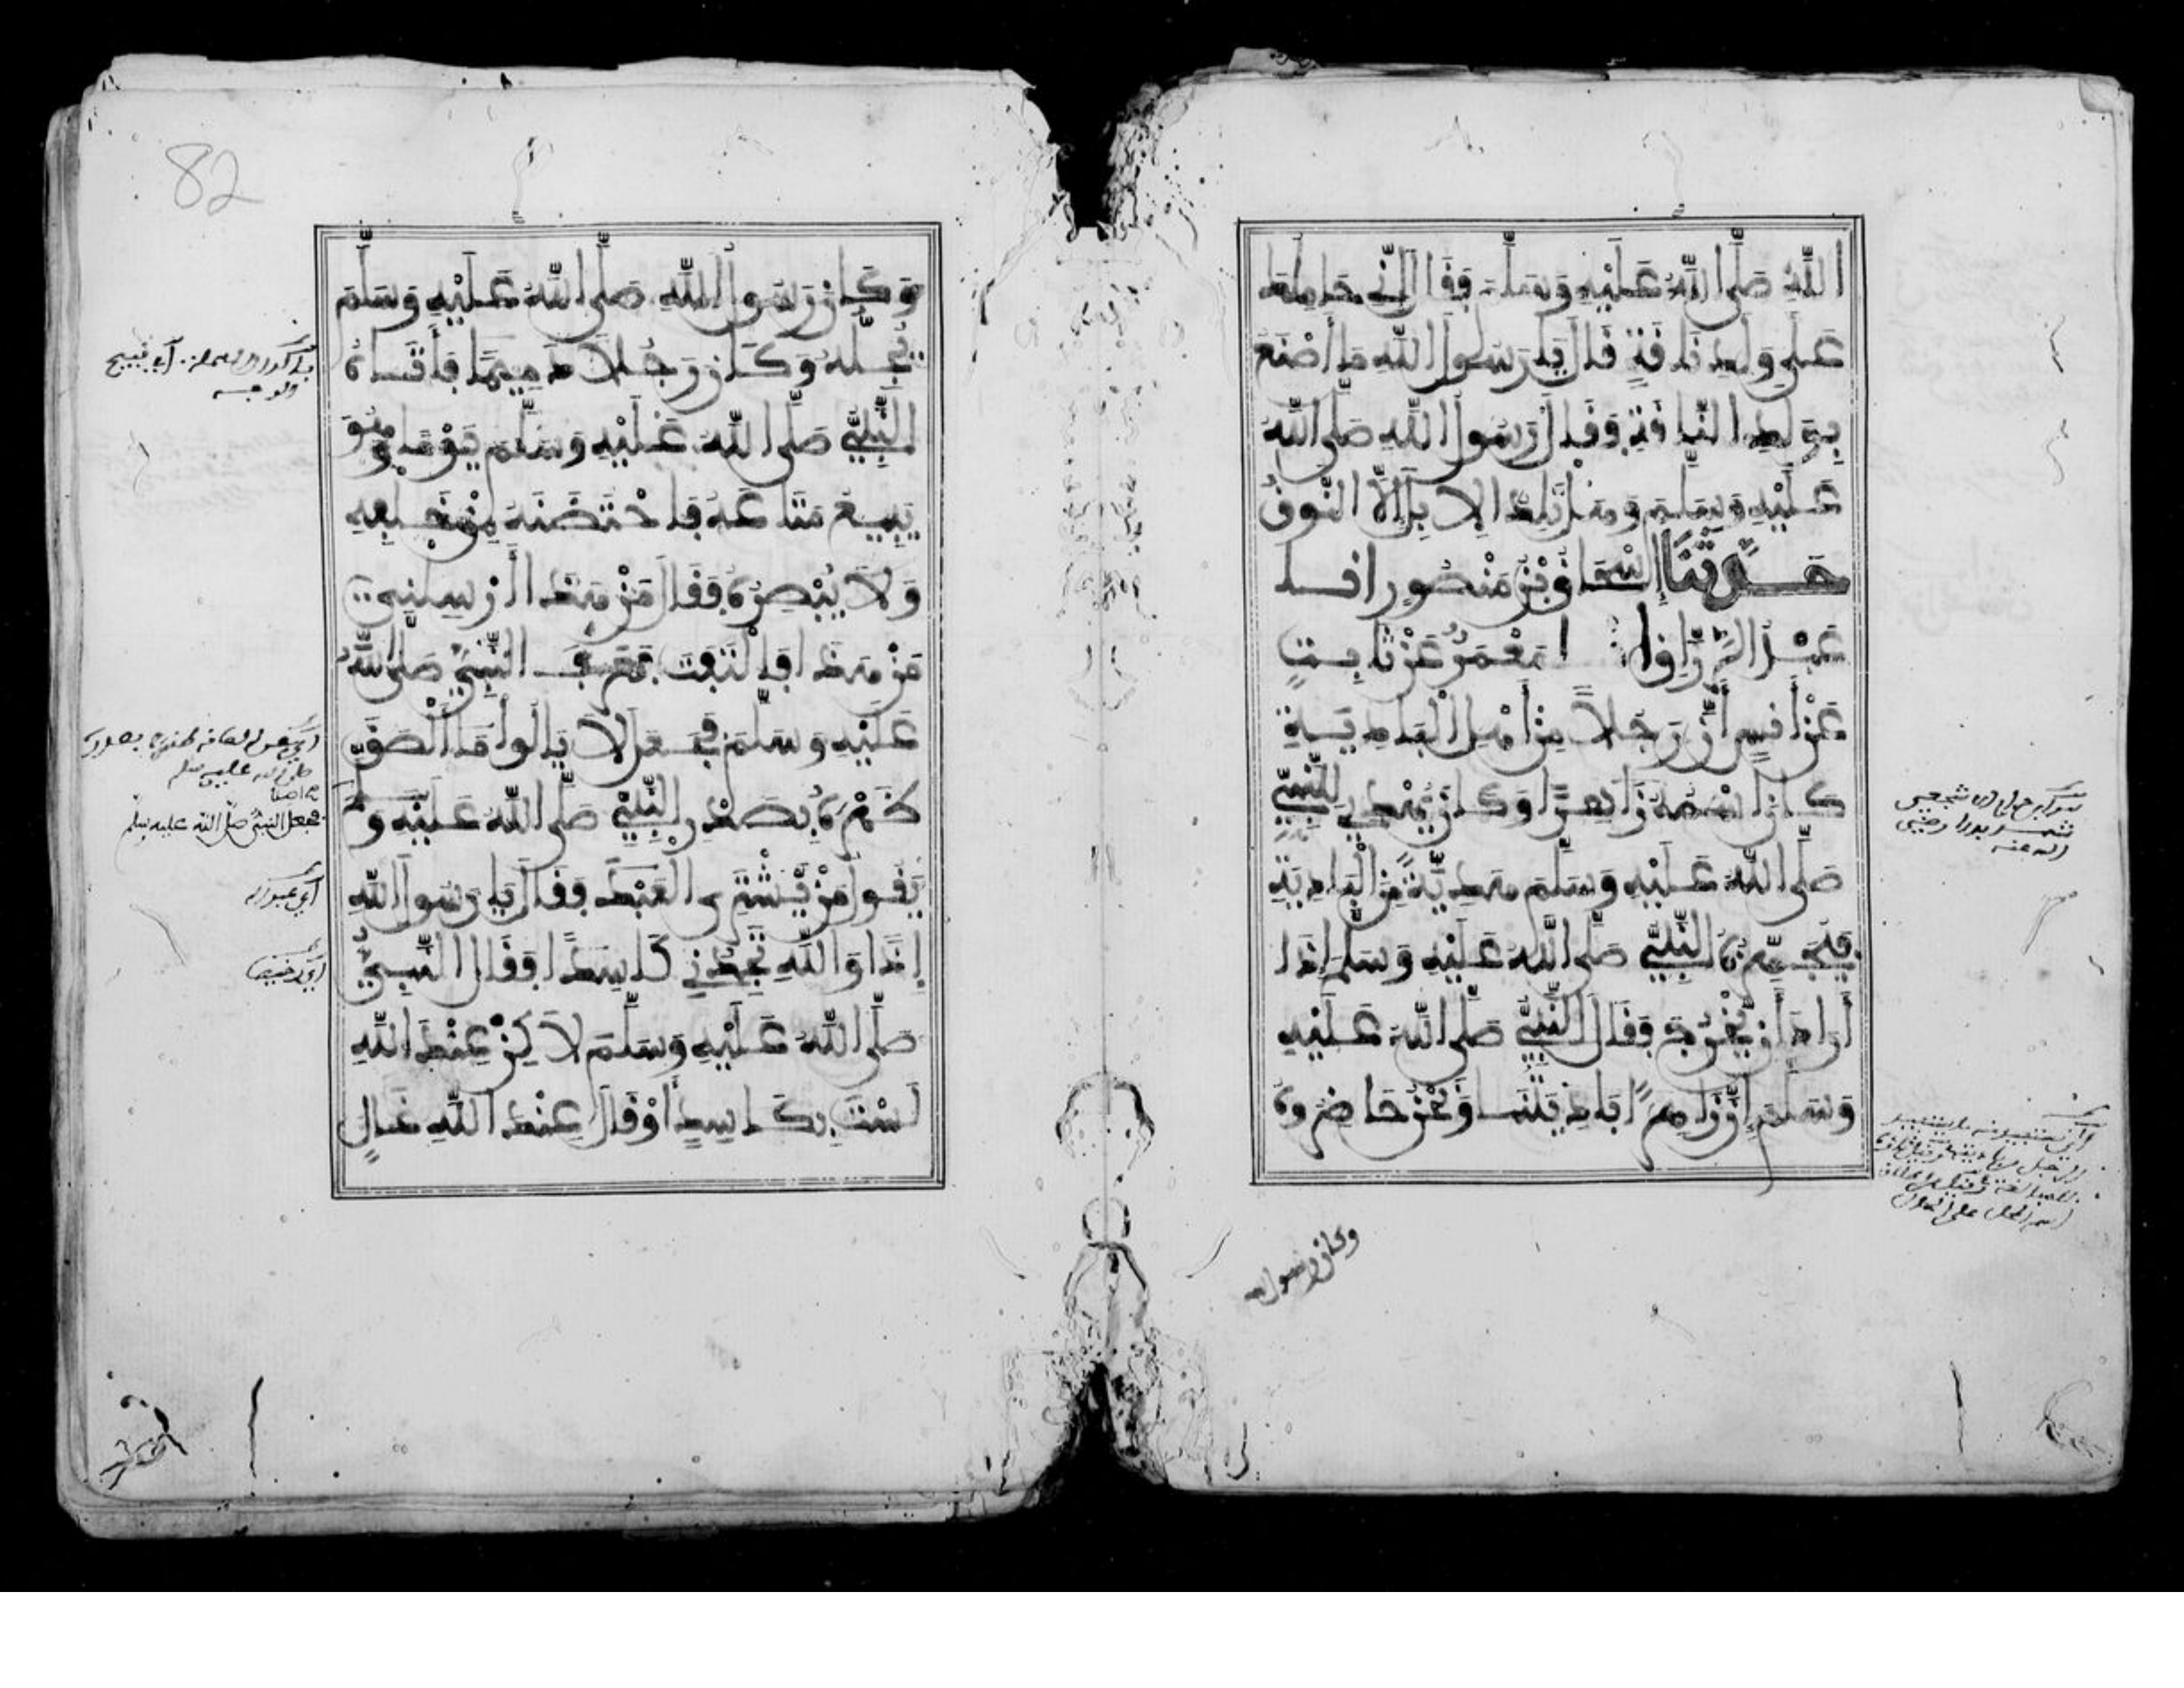 اللَّهِ صَلَّى اللَّهُ عَلَيْهِ وَسَلَّمَ فَقَالَ إِنِّي حَامِلُكَ
عَلَى وَلَدِ نَاقَةٍ قَالَ يَا رَسُولَ اللَّهِ مَا أَصْنَعُ
بِوَلَدِ النَّاقَةِ فَقَالَ رَسُولُ اللَّهِ صَلَّى اللَّهُ
عَلَيْهِ وَسَلَّمَ وَهَلْ تَلِدُ الْإِبِلَ إِلَّا النُّوقُ
حَدَّثَنَا إِسْحَاقُ بْنُ مَنْصُورٍ انا
عَبْدُ الرَّزَّاقِ انا مَعْمَرٌ عَنْ ثَابِتٍ
عَنْ أَنَسٍ أَنَّ رَجُلاً مِنْ أَهْلِ الْبَادِيَةِ
كَانَ اسْمُهُ زَاهِرًا وَكَانَ يُهْدِي لِلنَّبِيِّ
صَلَّى اللَّهُ عَلَيْهِ وَسَلَّمَ هَدِيَّةً مِنَ الْبَادِيَةِ
فَيُجَهِّزُهُ النَّبِيُّ صَلَّى اللَّهُ عَلَيْهِ وَسَلَّمَ إِذَا
أَرَادَ أَنْ يَخْرُجَ فَقَالَ النَّبِيُّ صَلَّى اللَّهُ عَلَيْهِ
وَسَلَّمَ إِنَّ زَاهِرًا بَادِيَتُنَا وَنَحْنُ حَاضِرُوهُ
وكان رسول
82
وَكَانَ رَسُولُ اللَّهِ صَلَّى اللَّهُ عَلَيْهِ وَسَلَّمَ
يُحِبُّهُ وَكَانَ رَجُلاً دَمِيمًا فَأَتَاهُ
النَّبِيُّ صَلَّى اللَّهُ عَلَيْهِ وَسَلَّمَ يَوْمًا وَهُوَ
يَبِيعُ مَتَاعَهُ فَاحْتَضَنَهُ مِنْ خَلْفِهِ
وَلَا يُبْصِرُهُ فَقَالَ مَنْ هَذَا أَرْسِلْنِي
مَنْ هَذَا فَالْتَفَتَ فَعَرَفَ النَّبِيَّ صَلَّى اللَّهُ
عَلَيْهِ وَسَلَّمَ فَجَعَلَ لَا يَالُو مَا أَلْصَقَ
ظَهْرَهُ بِصَدْرِ النَّبِيِّ صَلَّى اللَّهُ عَلَيْهِ وَسَلَّمَ
فجعل النبي صلى الله عليه وسلم
يَقُولُ مَنْ يَشْتَرِي الْعَبْدَ فَقَالَ يَا رَسُولَ اللَّهِ
إِذًا وَاللَّهِ تَجِدُنِي كَاسِدًا فَقَالَ النَّبِيُّ
صَلَّى اللَّهُ عَلَيْهِ وَسَلَّمَ لَاكِنْ عِنْدَ اللَّهِ
لَسْتَ بِكَاسِدٍ أَوْ قَالَ عِنْدَ اللَّهِ غَالٍ